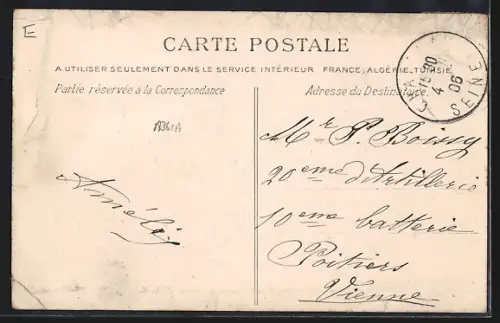 E
CARTE POSTALE
A UTILISER SEULEMENT DANS LE SERVICE INTÉRIEUR FRANCE, ALGÉRIE, TUNISIE
Partie réservée à la Correspondance
Adresse du Destinataire
15 30
4
06
SEINE
Amélie
Mr P. Boissy
20eme d'Artillerie
10eme batterie
Poitiers
Vienne